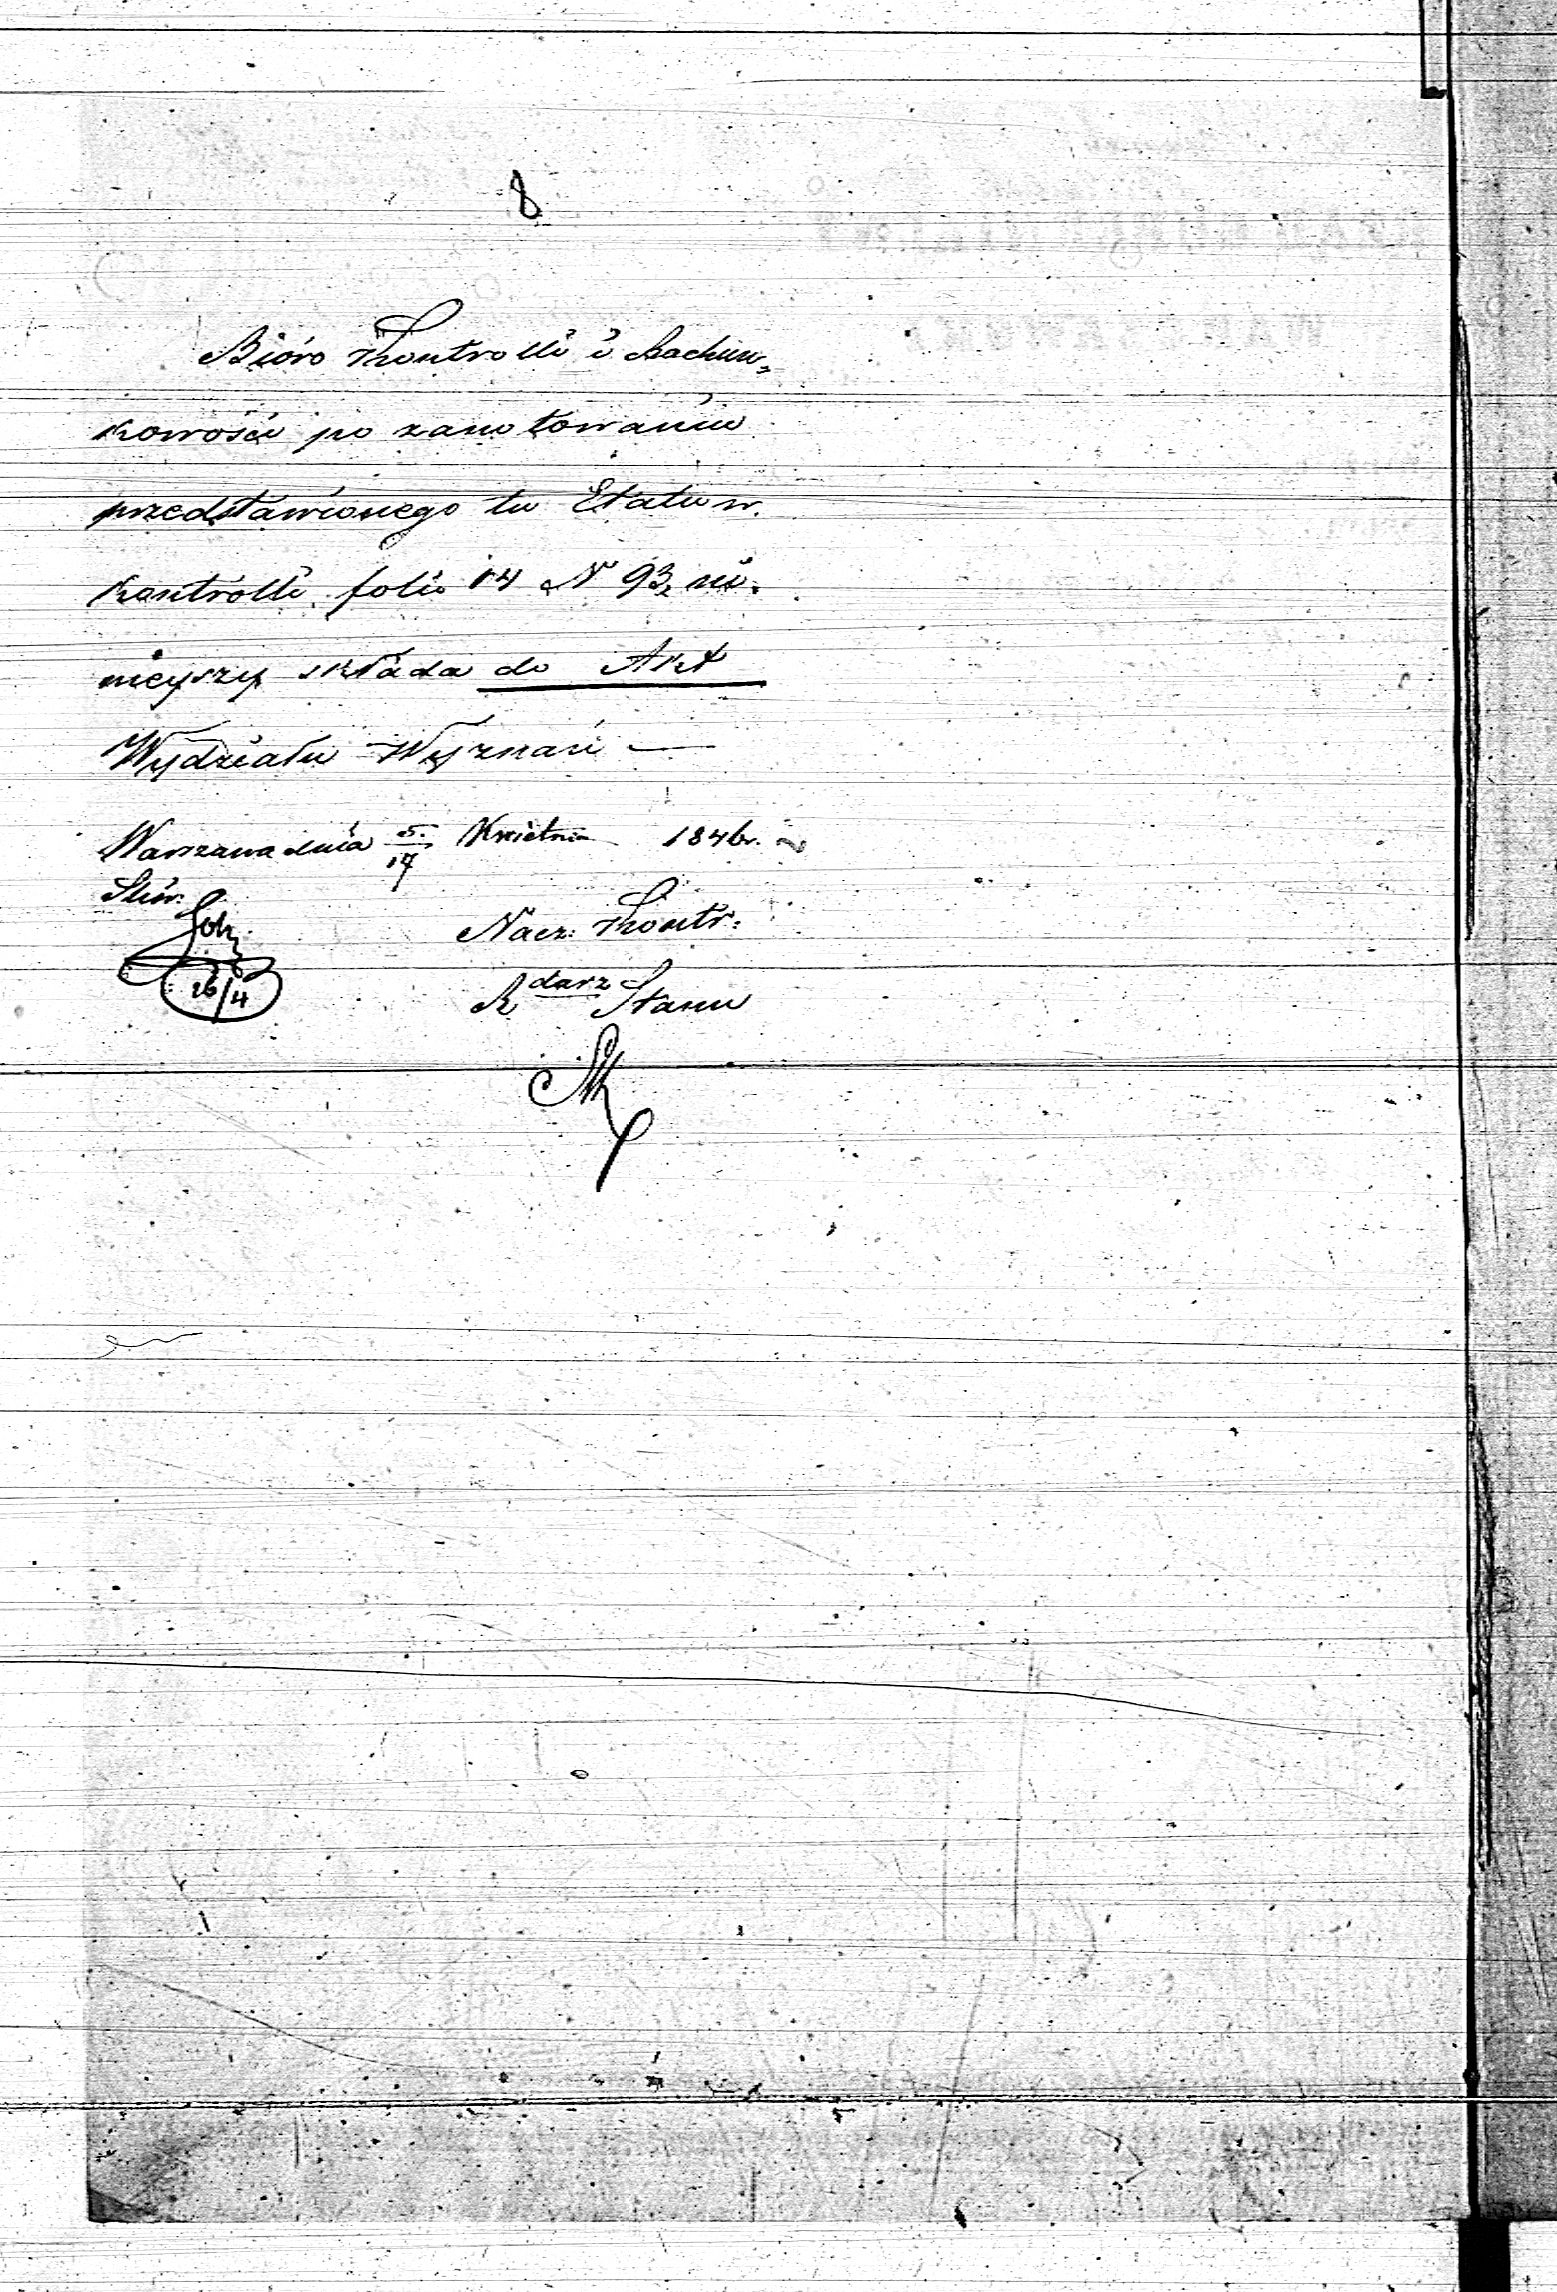 8
Bióro Kontrolli i Rachun=
kowości po zanotowaniu
przedstawionego tu Etatu w
Kontrolli folio 14 N 93, ni=
nieyszy składa do Akt
Wydziału Wyznań —
Warszawa dnia 5/17 Kwietnia 1846 r.
Nacz: Kontr:
Rdarz Stanu
26/4